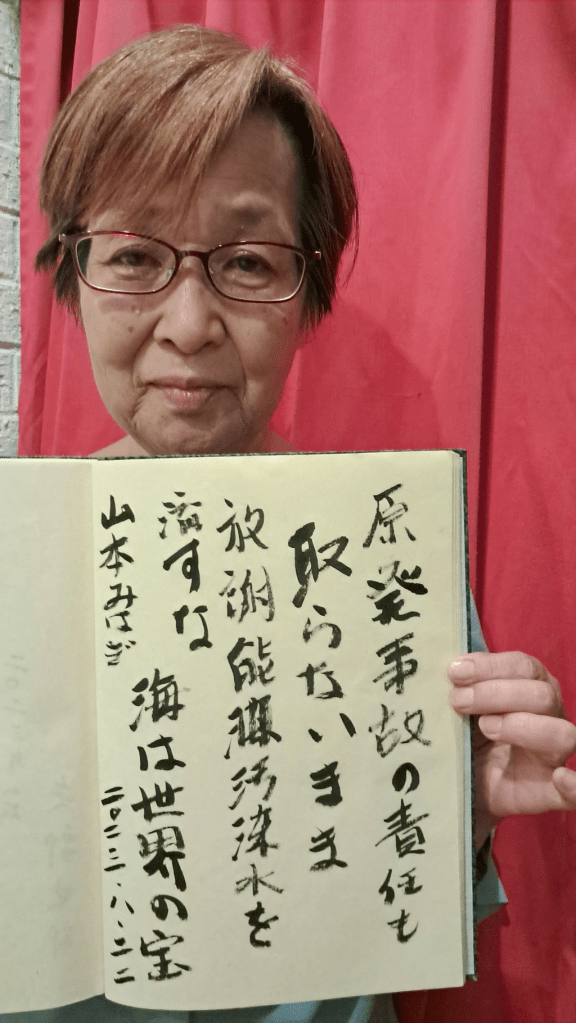 原発事故の責任も
取らないまま
放謝能汚染水を
流すな
海は世界の宝
山本みはぎ
二〇二三・八・二二